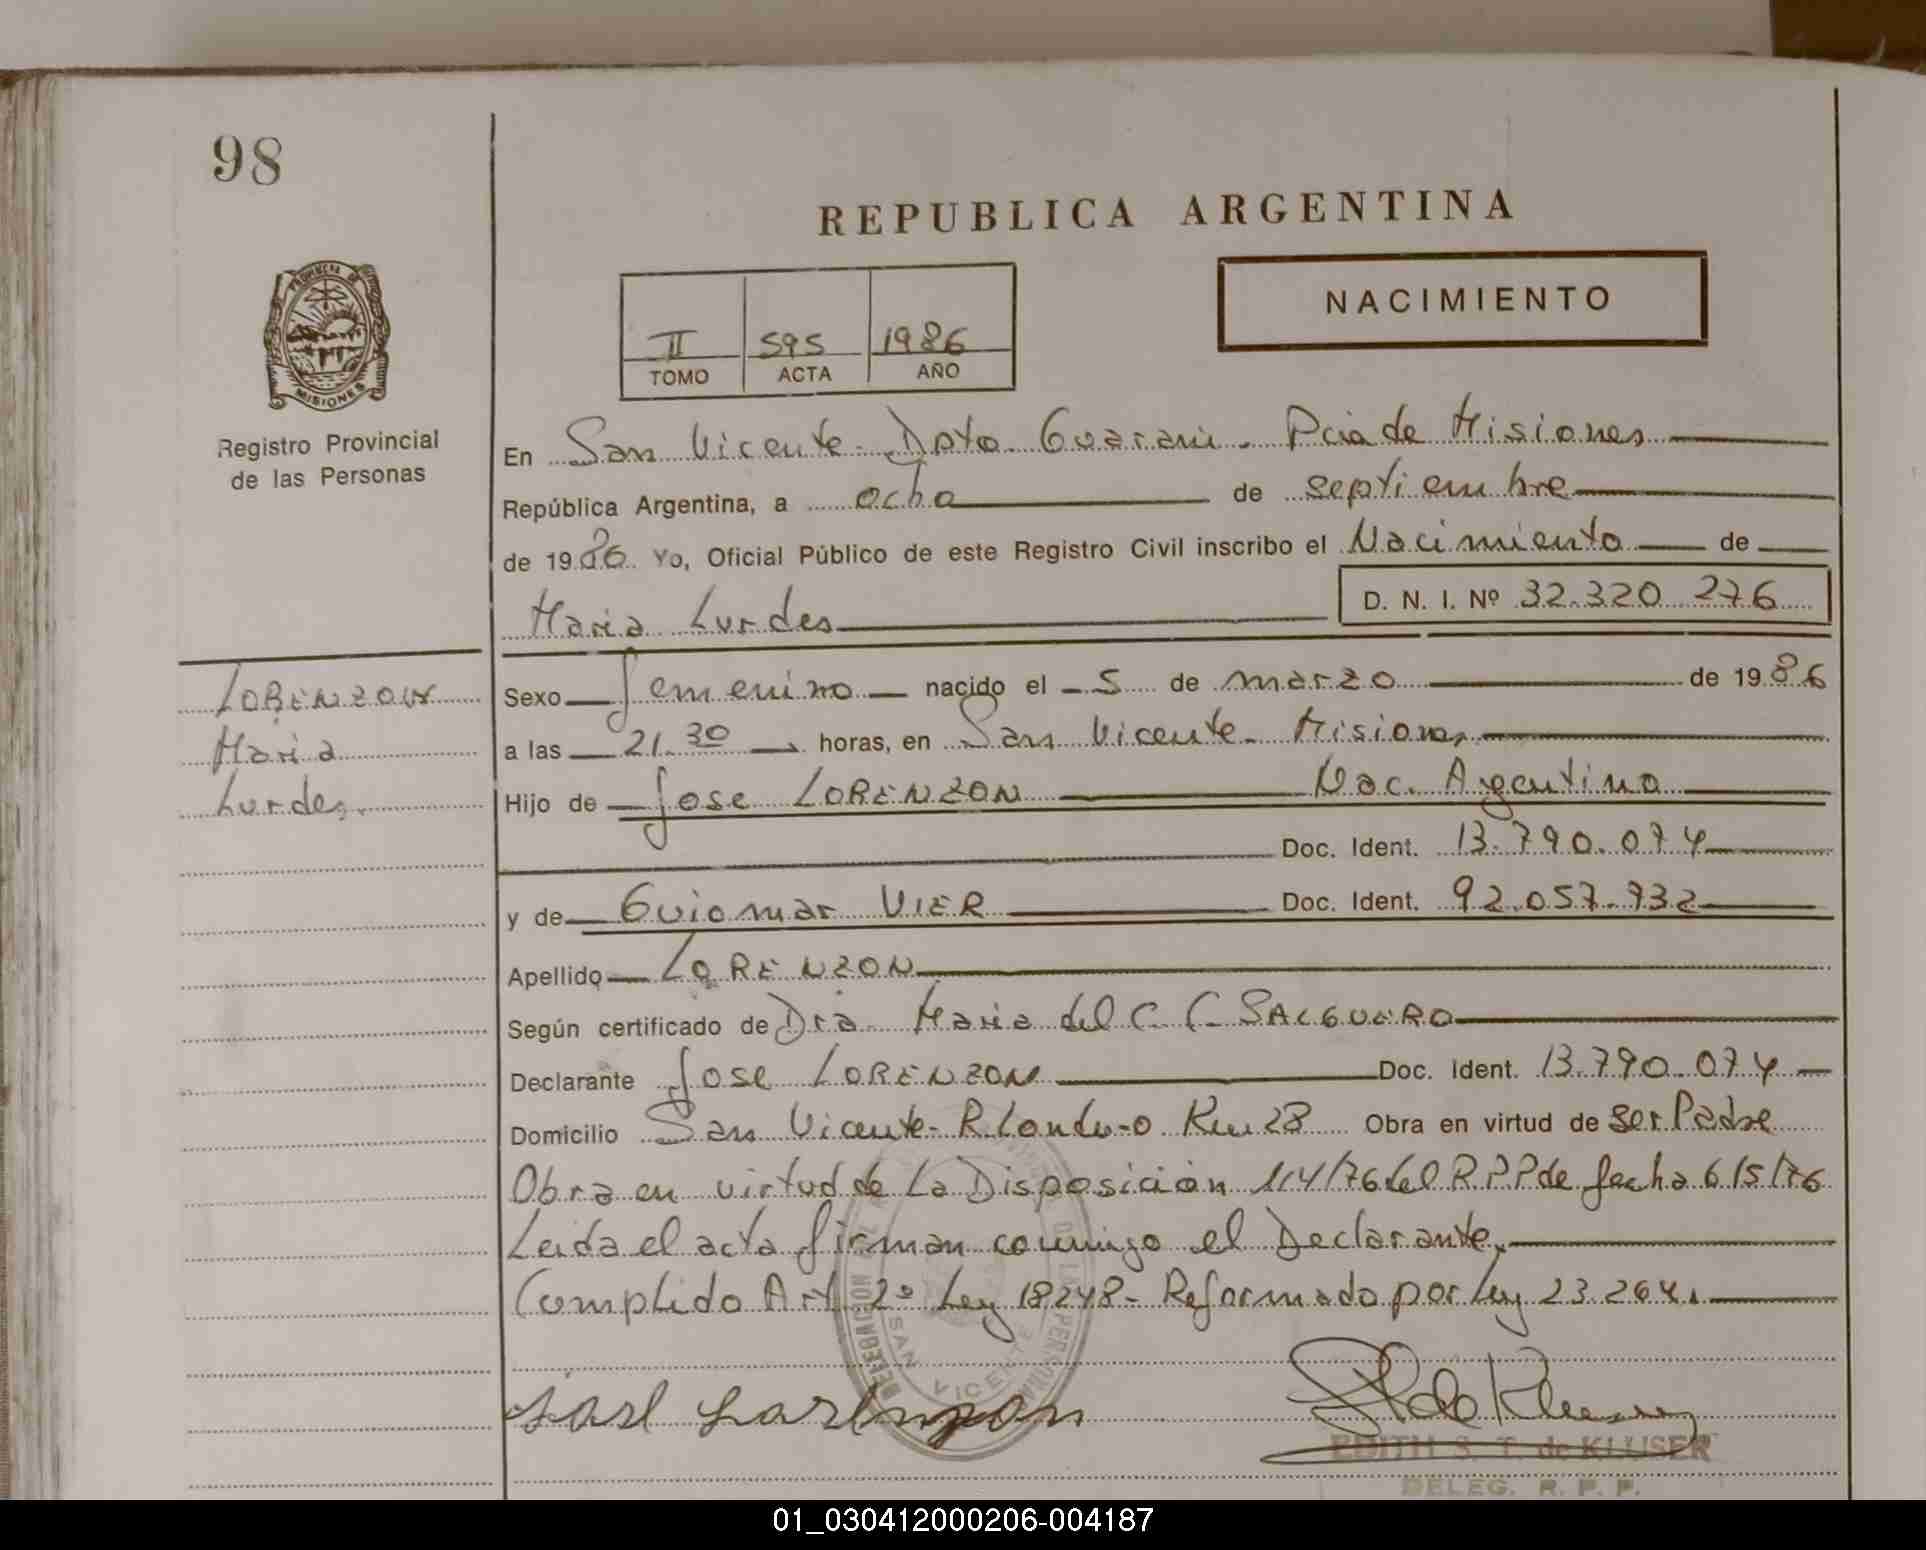 98
REPUBLICA ARGENTINA
PROVINCIA DE
MISIONES
Registro Provincial
de las Personas
II 595 1986
TOMO ACTA AÑO
NACIMIENTO
En San Vicente - Dpto Guarani - Pcia de Misiones
República Argentina, a ocho de septiembre
de 1986 Yo, Oficial Público de este Registro Civil inscribo el Nacimiento de
Maria Lurdes D. N. I. Nº 32.320 276
LORENZON
Maria
Lurdes
Sexo femenino nacido el 5 de marzo de 1986
a las 21.30 horas, en San Vicente - Misiones
Hijo de Jose LORENZON Nac. Argentina
Doc. Ident. 13.790.074
y de Guiomar VIER Doc. Ident. 92.057.932
Apellido LORENZON
Según certificado de Dra Maria del C. C. SALGUERO
Declarante Jose LORENZON Doc. Ident. 13.790.074
Domicilio San Vicente - Km 28 Obra en virtud de ser Padre
Obra en virtud de La Disposición 114/76 del R.P.P de fecha 6/5/76
Leida el acta firman conmigo el Declarante,
Complido Art 2º Ley 18248 - Reformado por Ley 23.264.
DELEGACION
SAN VICENTE
Jose Lorenzon
EDITH S. T. de KLUSER
DELEG. R. P. P.
01_030412000206-004187